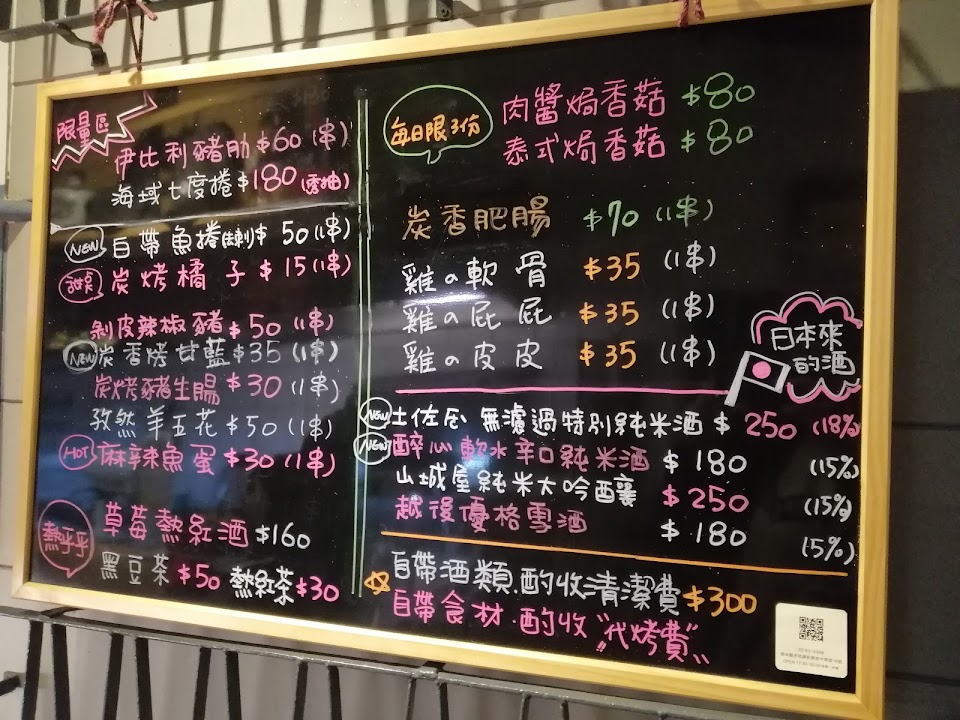 限量區
伊比利豬肋 $60 (串)
海域七度捲 $180 (透抽)
NEW 白帶魚捲 $ 50 (1串)
甜桌 炭烤橘子 $ 15 (1串)
剝皮辣椒豬 $ 50 (1串)
NEW 炭香烤甘藍 $35 (1串)
炭烤豬生腸 $ 30 (1串)
孜然羊五花 $ 50 (1串)
HOT 麻辣魚蛋 $30 (1串)
熱乎乎
草莓熱紅酒 $160
黑豆茶 $50 熱紅茶 $30
每日限3份
肉醬焗香菇 $80
泰式焗香菇 $80
炭香肥腸 $70 (1串)
雞の軟骨 $35 (1串)
雞の屁屁 $35 (1串)
雞の皮皮 $35 (1串)
日本來
的酒
NEW 土佐 無濾過特別純米酒 $ 250 (18%)
NEW 醉心軟水辛口純米酒 $ 180 (15%)
山城屋純米大吟釀 $ 250 (15%)
越後優格雪酒 $ 180 (5%)
自帶酒類.酌收清潔費 $300
自帶食材.酌收"代烤費"